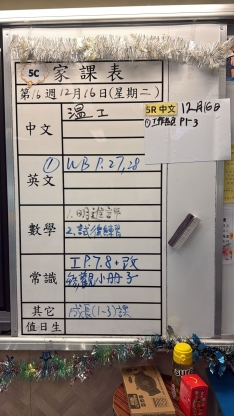 5C 家課表
第16週12月16日(星期二)
中文 温工
英文 ① WB P.27,28
數學 1.
2.試後練習
常識 IP.7.8+改
參觀小冊子
其它 成長(1-3)課
值日生
5R 中文 12月16日
① P1-3